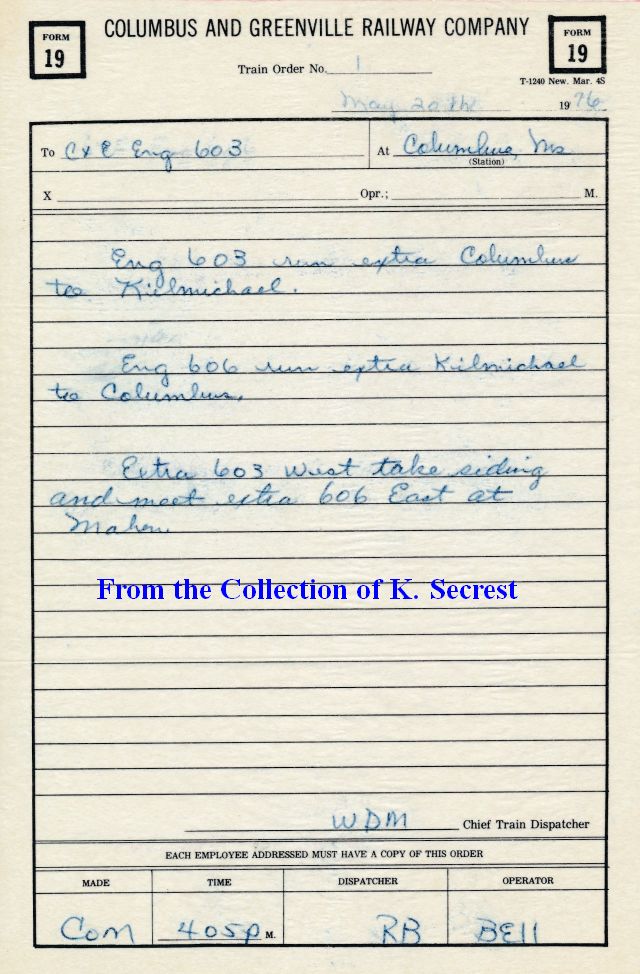 FORM 19
COLUMBUS AND GREENVILLE RAILWAY COMPANY
FORM 19
Train Order No. 1
T-1240 New. Mar. 4S
May 20th 1976
To C&E Eng 603 At Columbus, Ms
(Station)
X Opr.; M.
Eng 603 run extra Columbus
to Kilmichael.
Eng 606 run extra Kilmichael
to Columbus.
Extra 603 West take siding
and meet extra 606 East at
Mahen.
From the Collection of K. Secrest
WDM Chief Train Dispatcher
EACH EMPLOYEE ADDRESSED MUST HAVE A COPY OF THIS ORDER
MADE TIME DISPATCHER OPERATOR
Com 405P M. RB BEll